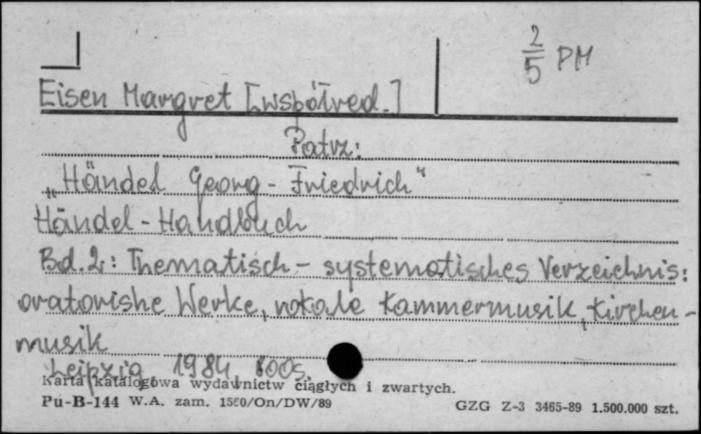 2/5 PM
Eisen Margret [współred.]
Patrz:
„Händel Georg-Friedrich"
Händel-Handbuch
Bd. 2: Thematisch-systematisches Verzeichnis:
oratorishe Werke, vokale Kammermusik, Kirchen-
musik
Leipzig 1984, 800s.
Karta katalogowa wydawnictw ciągłych i zwartych.
Pu-B-144 W.A. zam. 1580/On/DW/89 GZG Z-3 3465-89 1.500.000 szt.